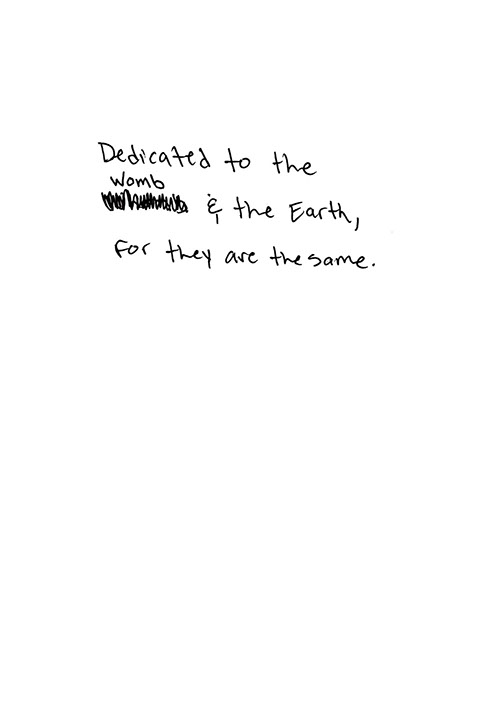 Dedicated to the
Womb
& the Earth,
For they are the same.